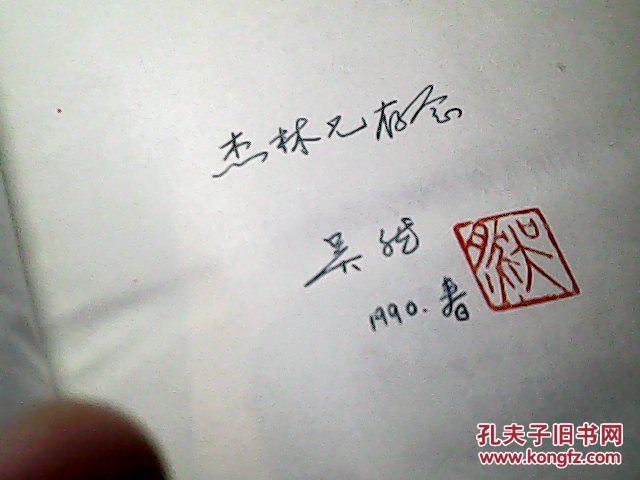 杰林兄存念
吴然
1990.春
吴然
孔夫子旧书网
www.kongfz.com